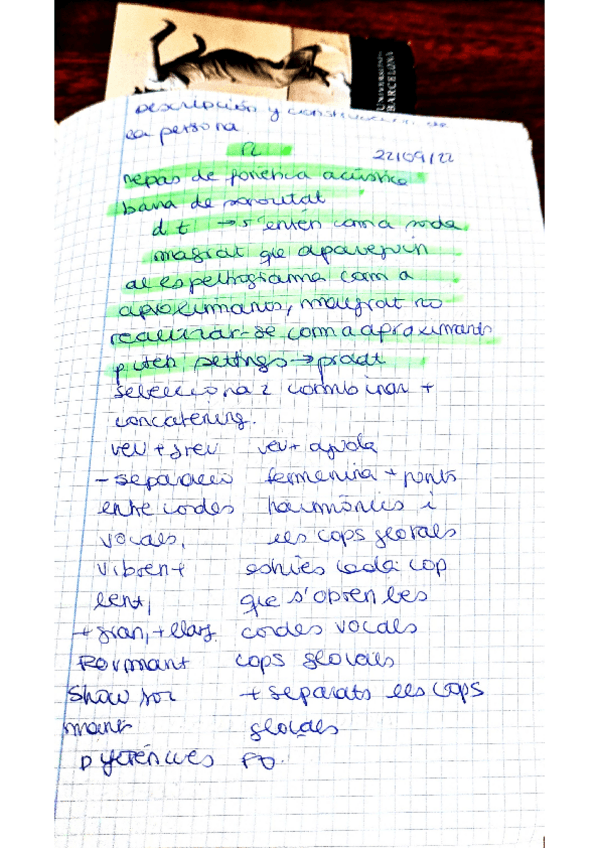 UNIVERSITAT DE BARCELONA
Descripción y construcción de
la persona
22/09/22
repàs de fonètica acústica
barra de sonoritat
d t → s'entén com a sorda
malgrat que apareguin
al espectrograma com a
aproximants, malgrat no
realitzar-se com a aproximants
settings → praat
selecciona 2 combinar +
concatening.
veu + greu veu + aguda
- separació femenina + ponts
entre cordes harmònics i
vocals, els cops glotals
vibren + estries cada cop
lent, que s'obren les
+ gran, + llarg. cordes vocals
Formant cops glotals
Show for + separats els cops
mants glotals
Diferències F0.